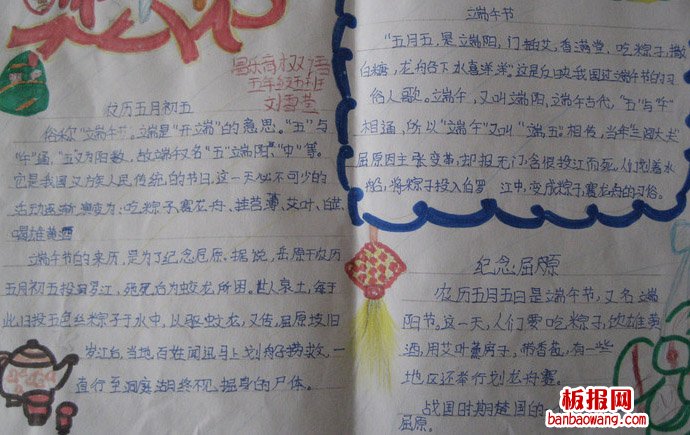 五年级五班
农历五月初五
俗称"端午节。端是"开端"的意思。"五"与
"午"通，"五"又为阳数，故端午又名"五"端阳"、"中"等。
它是我国汉族人民传统的节日，这一天必不可少的
活动逐渐演变为：吃粽子、赛龙舟、挂菖蒲、艾叶、
喝雄黄酒
端午节的来历，是为了纪念屈原。据说，屈原于农历
五月初五投汨罗江，死后为蛟龙所困。世人哀之，每于
此日投五色丝粽子于水中，以驱蛟龙，又传，屈原投汨
罗江后，当地百姓闻讯马上划船捞救，一
直行至洞庭湖终不见，屈原的尸体。
立端午节
"五月五，是立端阳，门插艾，香满堂，吃粽子，撒
白糖，龙舟各下水喜洋洋"。这是反映我国过端午节的习
俗人歌。端午，又叫端阳，立端午古代，"五"与"午"
相通，所以"端午"又叫"端五。相传，当年三闾大夫
屈原因主张变革，却报无门，含恨投江而死，人们划着
船，将粽子投入伯罗 江中，变成粽子，赛龙舟的习俗。
纪念屈原
农历五月五日是立端午节，又名立端
阳节。这一天，人们要吃粽子，饮雄黄
酒，用艾叶薰房子，带香苞，有一些
地区还举行划龙舟赛。
战国时期楚国的
屈原。
板报网
banbaowang.com